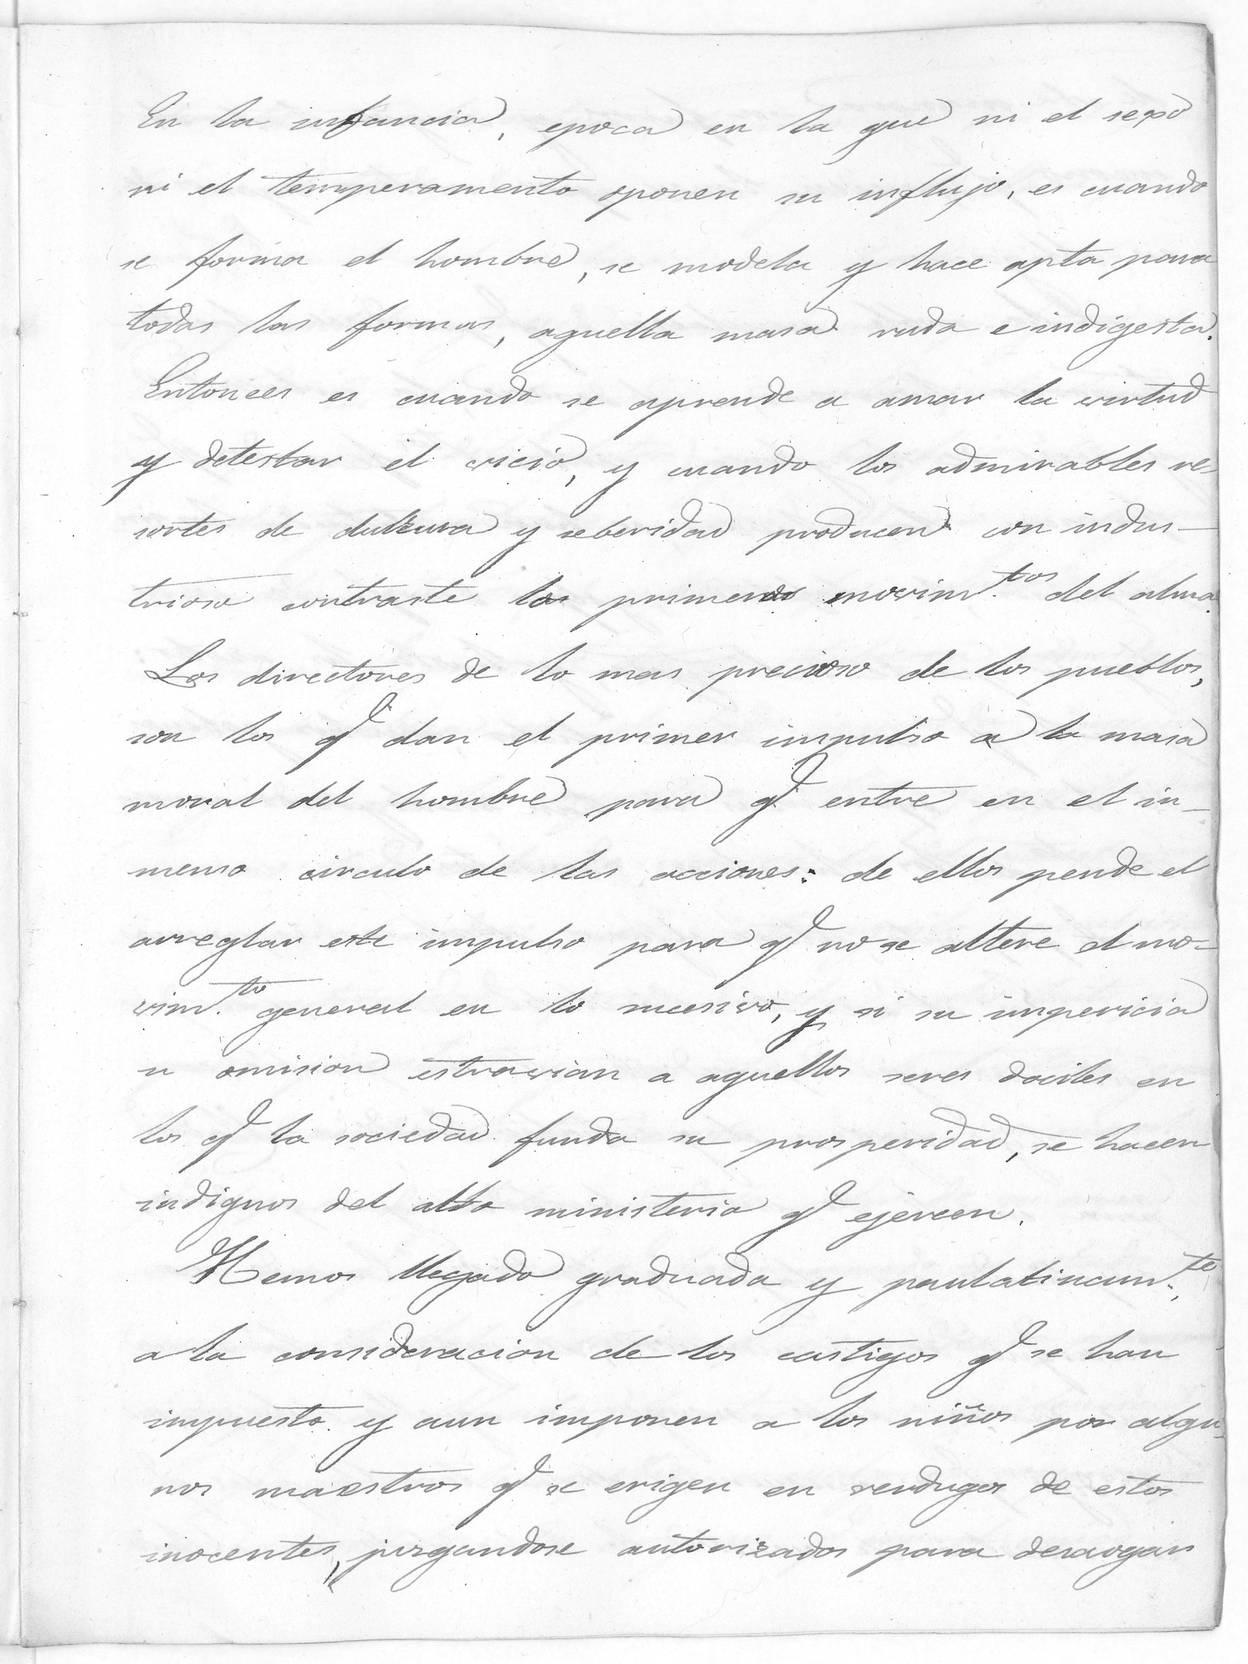 En la infancia, epoca en la que ni el sexo
ni el temperamento oponen su influjo, es cuando
se forma el hombre, se modela y hace apta para
todas las formas, aquella masa ruda e indigesta.
Entonces es cuando se aprende a amar la virtud
y detestar el vicio, y cuando los admirables re-
sortes de dulzura y seberidad producen con indus-
trioso contraste los primeros movim.tos del alma.
Los directores de lo mas precioso de los pueblos,
son los q.e dan el primer impulso a la masa
moral del hombre para q.e entre en el in-
menso circulo de las acciones: de ellos pende el
arreglar este impulso para q.e no se altere el mo-
vim.to general en lo sucesivo, y si su impericia
u omision estravian a aquellos seres dociles en
los q.e la sociedad funda su prosperidad, se hacen
indignos del alto ministerio q.e ejercen.
Hemos llegado graduada y paulatinam.te,
a la consideracion de los castigos q.e se han
impuesto y aun imponen a los niños por algu-
nos maestros q.e se erigen en verdugos de estos
inocentes, juzgandose autorizados para desaogar